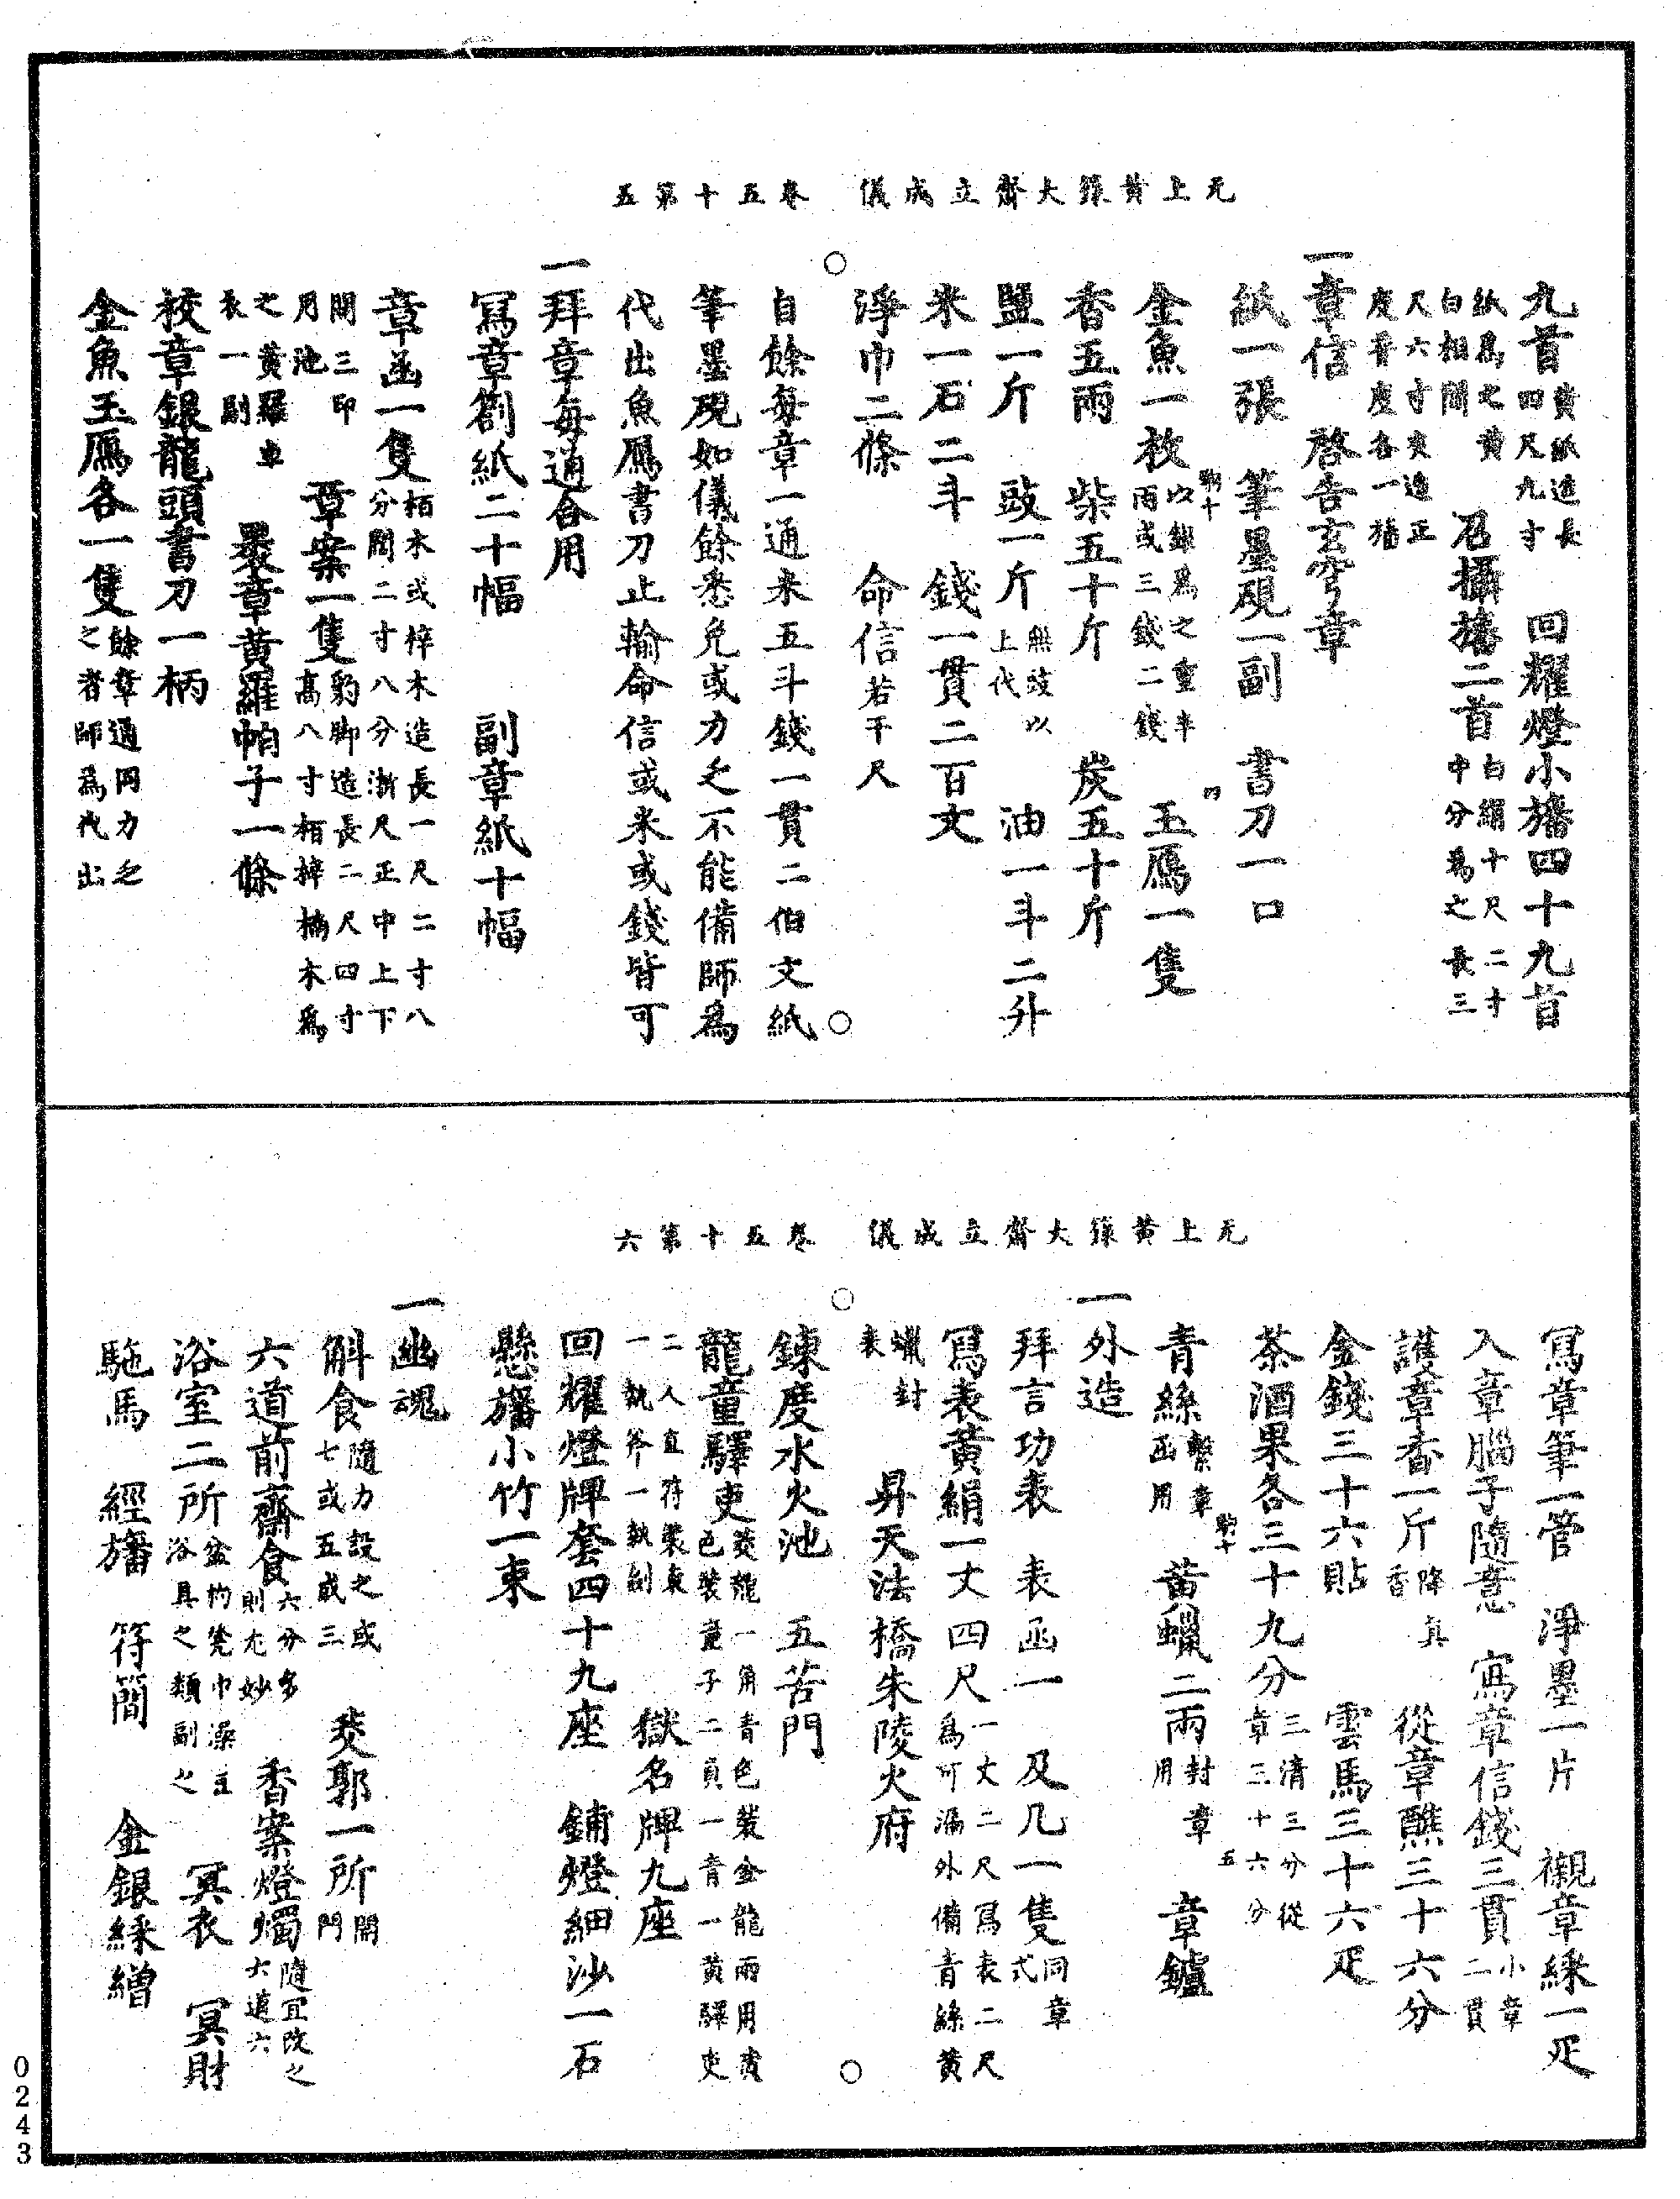 无上黃籙大齋立成儀　卷五十第五
九首黃紙造長四尺九寸　回耀燈小旛四十九首
紙爲之黃白相間　召攝旛二首白絹十尺二寸中分爲之長三
尺六寸夾造正度晉度各一旛
一章信　啓告玄穹章
紙一張　筆墨硯一副　書刀一口
金魚一枚以銀爲之重半兩或三錢二錢　玉鴈一隻
香五兩　柴五十斤　炭五十斤
鹽一斤　豉一斤無豉以上代　油一斗二升
米一石二斗　錢一貫二百文
淨巾二條　命信若干尺
自餘每章一通米五斗錢一貫二伯文紙
筆墨硯如儀餘悉免或力乏不能備師爲
代出魚鴈書刀止輸命信或米或錢皆可
一拜章每通合用
寫章劄紙二十幅　副章紙十幅
章函一隻栢木或梓木造長一尺二寸八分闊二寸八分浙尺正中上下
開三印用池　章案一隻豹脚造長二尺四寸高八寸栢梓楠木爲
之黃羅車表一副　褁章黃羅帕子一條
校章銀龍頭書刀一柄
金魚玉鴈各一隻餘章通同力乏之者師爲代出
无上黃籙大齋立成儀　卷五十第六
寫章筆一管　淨墨一片　襯章綵一疋
入章腦子隨意　寫章信錢三貫小章二貫
護章香一斤降真香　從章醮三十六分
金錢三十六貼　雲馬三十六疋
茶酒果各三十九分三清三分從章三十六分
青絲繫章函用　黃蠟二兩封章用　章鑪
一外造
拜言功表　表函一　及几一隻同章式
寫表黃絹一丈四尺一丈二尺寫表二尺爲可漏外備青絲黃
蠟封表　昇天法橋朱陵火府
鍊度水火池　五苦門
龍童驛吏茭龍一角青色裝金龍兩用黃色裝童子二員一青一黃驛吏
二人直符裝束一執斧一執劍　獄名牌九座
回耀燈牌套四十九座　鋪燈細沙一石
懸旛小竹一束
一幽魂
斛食隨力設之或七或五或三　茭郭一所開門
六道前齋食六分多則尤妙　香案燈燭隨宜改之六道六
浴室二所盆杓凳巾澡豆浴具之類副之　冥衣　冥財
駞馬　經旛　符簡　金銀綵繒
0243